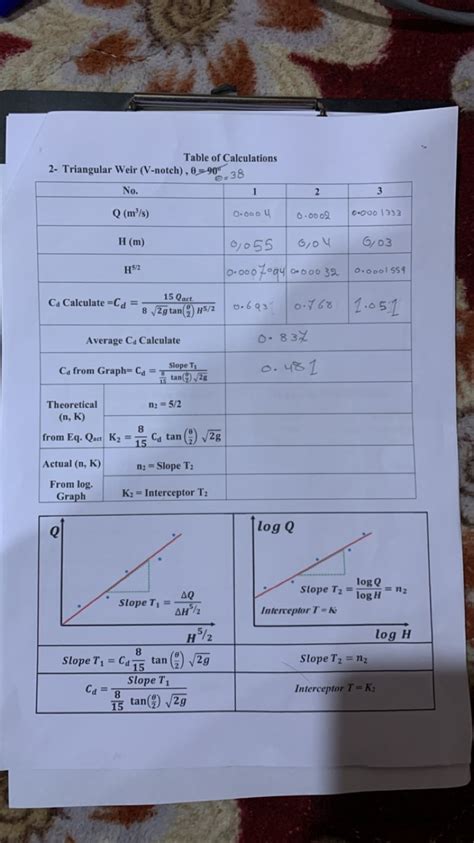 Table of Calculations
2- Triangular Weir (V-notch) , θ = 90°
38
No. 1 2 3
Q (m³/s) 0.0004 0.0002 0.0001333
H (m) 0,055 0,04 0,03
H^5/2 0.0007094 0.00032 0.0001559
Cd Calculate =C_d = 15 Q_act. / 8 √2g tan(θ/2) H^5/2 0.693 0.768 1.051
Average Cd Calculate 0.837
Cd from Graph= C_d = Slope T₁ / 8/15 tan(θ/2) √2g 0.481
Theoretical (n, K) from Eq. Qact
n₂ = 5/2
K₂ = 8/15 C_d tan (θ/2) √2g
Actual (n, K) From log. Graph
n₂ = Slope T₂
K₂ = Interceptor T₂
Q
Slope T₁ = ΔQ / ΔH^5/2
H^5/2
log Q
Slope T₂ = log Q / log H = n₂
Interceptor T = K₂
log H
Slope T₁ = C_d 8/15 tan (θ/2) √2g
Slope T₂ = n₂
C_d = Slope T₁ / 8/15 tan(θ/2) √2g
Interceptor T = K₂